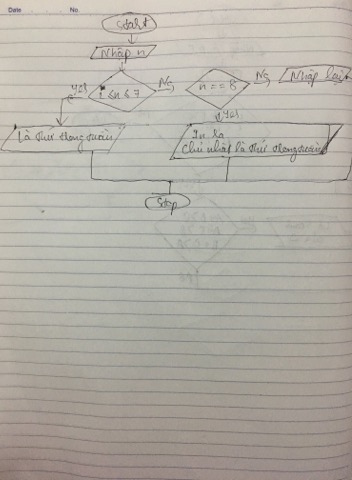 Date No.
Start
Nhập n
2 ≤ n ≤ 7
No
n == 8
No
Nhập lại
Yes
Yes
Là thứ trong tuần
In ra
Chủ nhật là thứ trong tuần
Stop